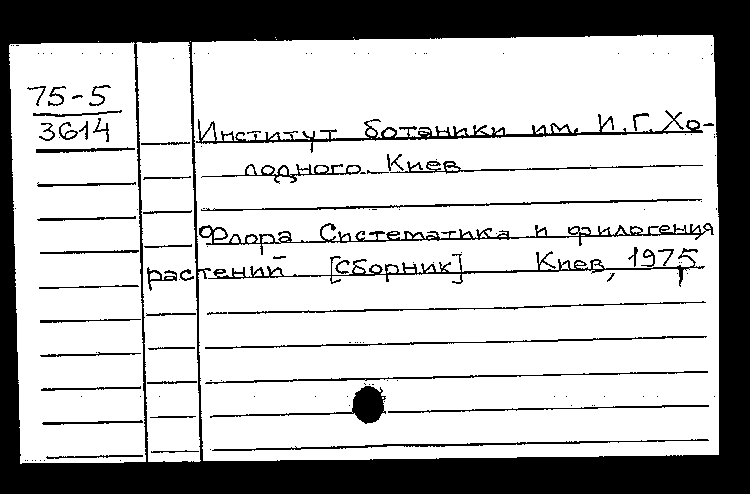 75-5
3614
Институт ботаники им. И.Г. Хо-
лодного. Киев
Флора. Систематика и филогения
растений. [Сборник] Киев, 1975